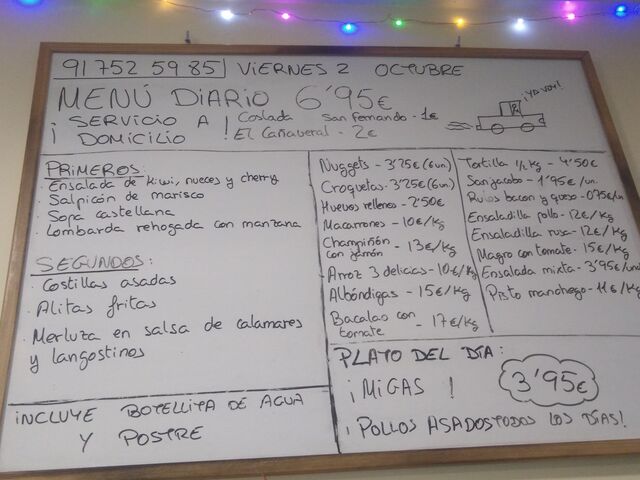 91 752 59 85 VIERNES 2 OCTUBRE
MENÚ DIARIO 6'95€
¡YA VOY!
¡ SERVICIO A DOMICILIO !
Coslada San Fernando - 1€
El Cañaveral - 2€
PRIMEROS:
· Ensalada de kiwi, nueces y cherry
· Salpicón de marisco
· Sopa castellana
· Lombarda rehogada con manzana
SEGUNDOS:
· Costillas asadas
· Alitas fritas
· Merluza en salsa de calamares
y langostinos
INCLUYE BOTELLITA DE AGUA
Y POSTRE
Nuggets - 3'25€ (6un)
Croquetas - 3'25€ (6un)
Huevos rellenos - 2'50€
Macarrones - 10€/Kg
Champiñón
con jamón - 13€/Kg
Arroz 3 delicias - 10€/Kg
Albóndigas - 15€/Kg
Bacalao con
tomate - 17€/Kg
Tortilla 1/2 Kg - 4'50€
Sanjacobo - 1'95€/un.
Rulos bacon y queso - 0'75€/un
Ensaladilla pollo - 12€/Kg
Ensaladilla rusa - 12€/Kg
Magro con tomate - 15€/Kg
Ensalada mixta - 3'95€/un
Pisto manchego - 11€/Kg
PLATO DEL DÍA:
¡MIGAS ! 3'95€
¡ POLLOS ASADOS TODOS LOS DÍAS!